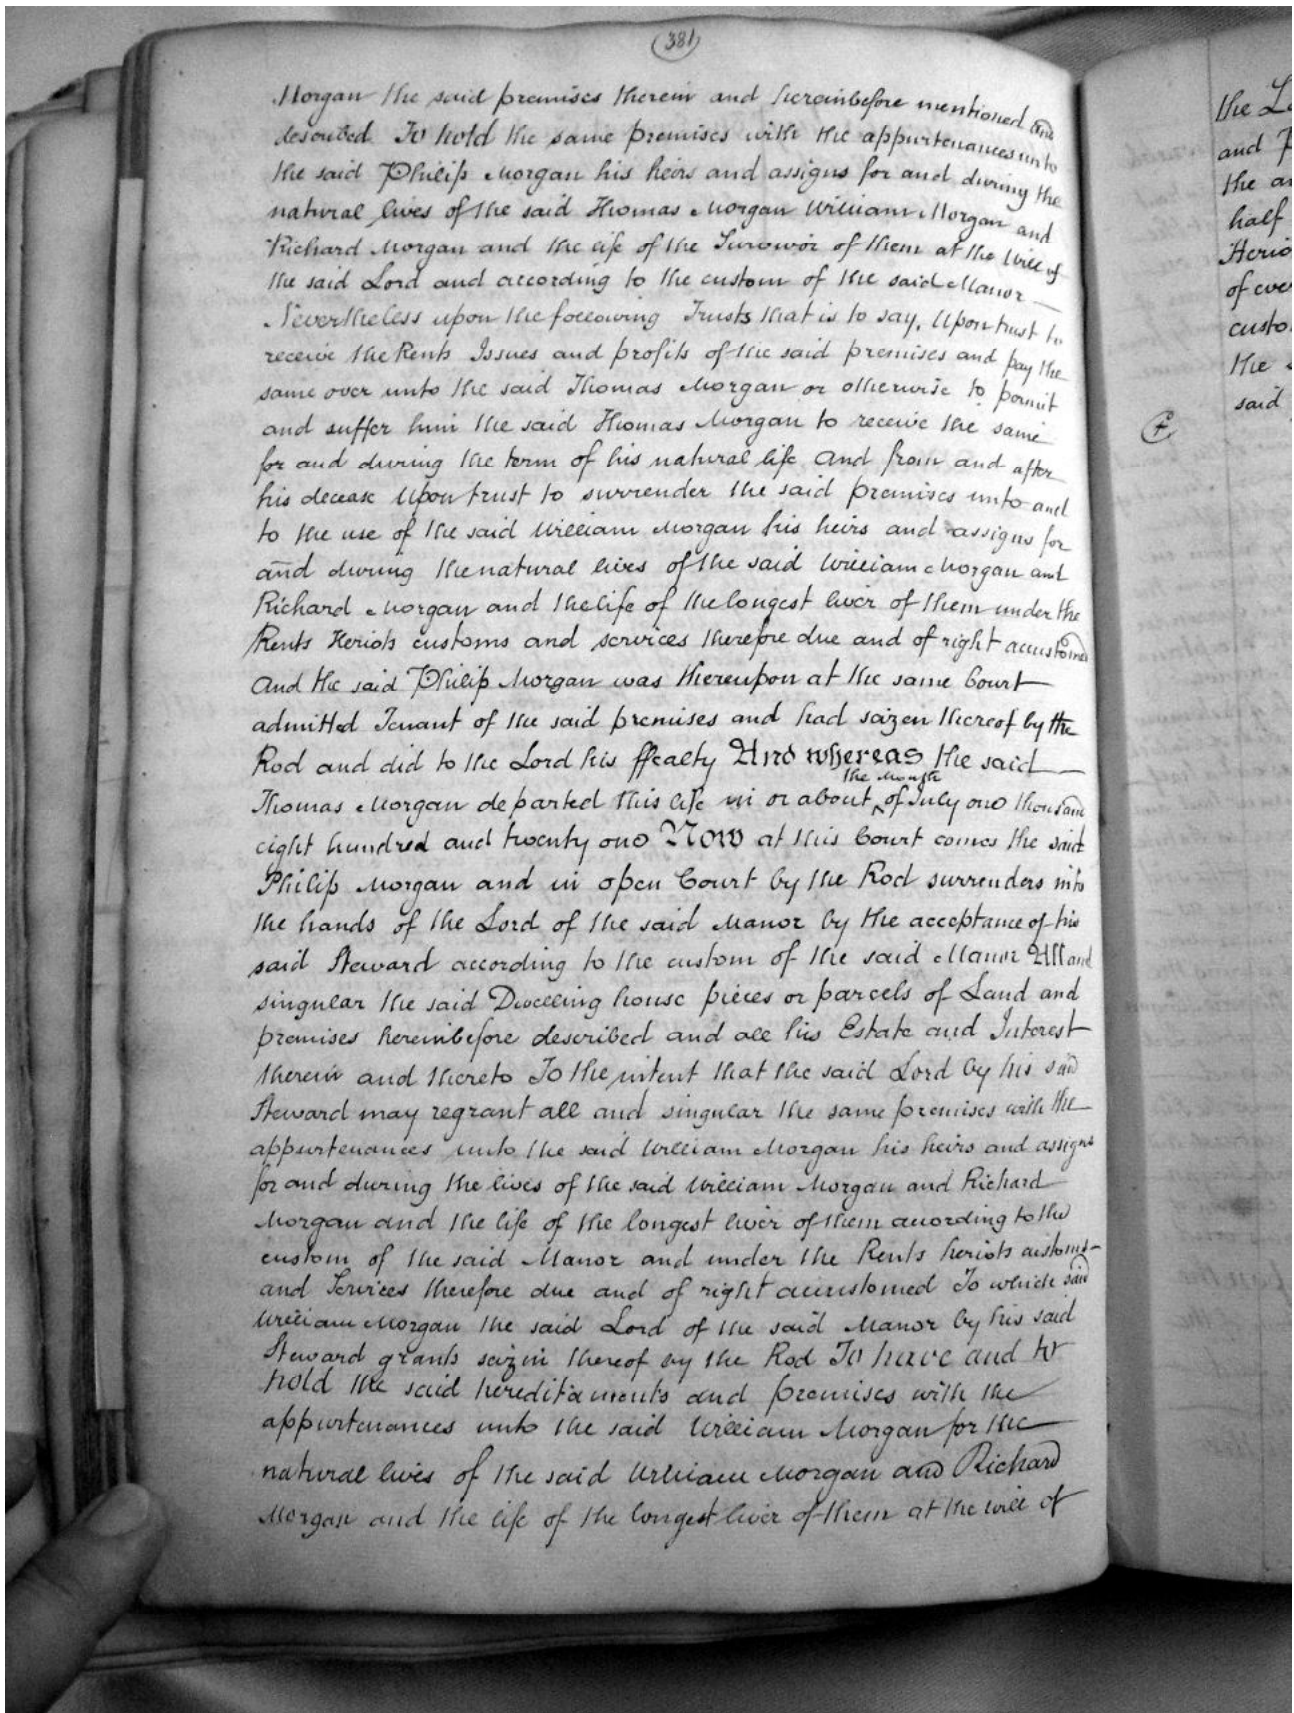 (381)
Morgan the said premises therein and hereinbefore mentioned and
described To hold the same premises with the appurtenances unto
the said Philip Morgan his heirs and assigns for and during the
natural lives of the said Thomas Morgan William Morgan and
Richard Morgan and the life of the Survivor of them at the Will of
the said Lord and according to the custom of the said Manor
Nevertheless upon the following Trusts that is to say, Upon trust to
receive the Rents Issues and profits of the said premises and pay the
same over unto the said Thomas Morgan or otherwise to permit
and suffer him the said Thomas Morgan to receive the same
for and during the term of his natural life And from and after
his decease Upon trust to surrender the said premises unto and
to the use of the said William Morgan his heirs and assigns for
and during the natural lives of the said William Morgan and
Richard Morgan and the life of the longest liver of them under the
Rents Heriots customs and services therefore due and of right accustomed
And the said Philip Morgan was thereupon at the same Court
admitted Tenant of the said premises and had seizen thereof by the
Rod and did to the Lord his ffealty And whereas the said
the month
Thomas Morgan departed this life in or about ^ of July one thousand
eight hundred and twenty one Now at this Court comes the said
Philip Morgan and in open Court by the Rod surrenders into
the hands of the Lord of the said Manor by the acceptance of his
said Steward according to the custom of the said Manor All and
singular the said Dwelling house pieces or parcels of Land and
premises hereinbefore described and all his Estate and Interest
therein and thereto To the intent that the said Lord by his said
Steward may regrant all and singular the same premises with the
appurtenances unto the said William Morgan his heirs and assigns
for and during the lives of the said William Morgan and Richard
Morgan and the life of the longest liver of them according to the
custom of the said Manor and under the Rents heriots customs
and Services therefore due and of right accustomed To which said
William Morgan the said Lord of the said Manor by his said
Steward grants seizin thereof by the Rod To have and to
hold the said hereditaments and premises with the
appurtenances unto the said William Morgan for the
natural lives of the said William Morgan and Richard
Morgan and the life of the longest liver of them at the will of
the
and
the
half
of
the
said